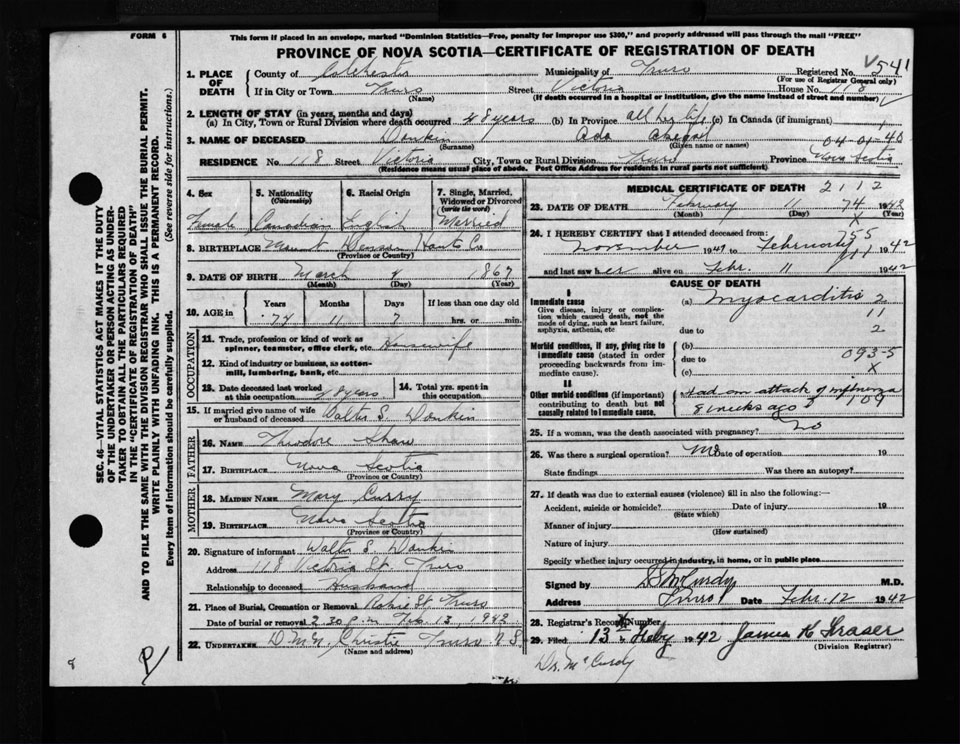 FORM 6
This form if placed in an envelope, marked "Dominion Statistics—Free, penalty for improper use $300," and properly addressed will pass through the mail "FREE"
PROVINCE OF NOVA SCOTIA—CERTIFICATE OF REGISTRATION OF DEATH
1. PLACE OF DEATH County of Colchester Municipality of Truro Registered No. 541
(For use of Registrar General only)
If in City or Town Truro Street Victoria House No. 118
(Name) (If death occurred in a hospital or institution, give the name instead of street and number)
2. LENGTH OF STAY (in years, months and days)
(a) In City, Town or Rural Division where death occurred 48 years (b) In Province all her life (c) In Canada (if immigrant)
3. NAME OF DECEASED Donkin Ada Abegail 04-01-40
(Surname) (Given name or names)
RESIDENCE No. 118 Street Victoria City, Town or Rural Division Truro Province Nova Scotia
(Residence means usual place of abode. Post Office Address for residents in rural parts not sufficient)
4. Sex 5. Nationality (Citizenship) 6. Racial Origin 7. Single, Married, Widowed or Divorced (write the word)
Female Canadian English Married
8. BIRTHPLACE Mount Denson Hants Co.
(Province or Country)
9. DATE OF BIRTH March 4 1867
(Month) (Day) (Year)
10. AGE in Years Months Days If less than one day old
74 11 7 hrs. or min.
OCCUPATION
11. Trade, profession or kind of work as spinner, teamster, office clerk, etc. Housewife
12. Kind of industry or business, as cotton-mill, lumbering, bank, etc.
13. Date deceased last worked at this occupation years
14. Total yrs. spent in this occupation
15. If married give name of wife or husband of deceased Walter S. Donkin
FATHER
16. NAME Theodore Shaw
17. BIRTHPLACE Nova Scotia
(Province or Country)
MOTHER
18. MAIDEN NAME Mary Curry
19. BIRTHPLACE Nova Scotia
(Province or Country)
20. Signature of informant Walter S. Donkin
Address 118 Victoria St. Truro
Relationship to deceased Husband
21. Place of Burial, Cremation or Removal Robie St. Truro
Date of burial or removal 2.30 p.m. Feb 13 1942
22. UNDERTAKER Christie Truro N.S.
(Name and address)
MEDICAL CERTIFICATE OF DEATH 2112
23. DATE OF DEATH February 11 74 1942
(Month) (Day) (Year)
X
24. I HEREBY CERTIFY that I attended deceased from: 755
November 1941 to February 11 1942
and last saw her alive on Febr. 11 1942
CAUSE OF DEATH
I
Immediate cause (a) Myocarditis 2
Give disease, injury or complication which caused death, not the mode of dying, such as heart failure, asphyxia, asthenia, etc due to
11
2
Morbid conditions, if any, giving rise to immediate cause (stated in order proceeding backwards from immediate cause). (b) due to (c)
093-5
X
II
Other morbid conditions (if important) contributing to death but not causally related to immediate cause.
Had an attack of influenza
8 weeks ago 109
25. If a woman, was the death associated with pregnancy? No
26. Was there a surgical operation? No Date of operation 19
State findings Was there an autopsy?
27. If death was due to external causes (violence) fill in also the following:—
Accident, suicide or homicide? Date of injury 19
(State which)
Manner of injury
(How sustained)
Nature of injury
Specify whether injury occurred in industry, in home, or in public place
Signed by D S McCurdy M.D.
Address Truro Date Febr. 12 1942
28. Registrar's Record Number
29. Filed 13th Feby 1942 James H Fraser
(Division Registrar)
Dr. McCurdy
8
SEC. 46—VITAL STATISTICS ACT MAKES IT THE DUTY
OF THE UNDERTAKER OR PERSON ACTING AS UNDER-
TAKER TO OBTAIN ALL THE PARTICULARS REQUIRED
IN THE "CERTIFICATE OF REGISTRATION OF DEATH"
AND TO FILE THE SAME WITH THE DIVISION REGISTRAR WHO SHALL ISSUE THE BURIAL PERMIT.
WRITE PLAINLY WITH UNFADING INK. THIS IS A PERMANENT RECORD.
Every item of information should be carefully supplied. (See reverse side for instructions.)